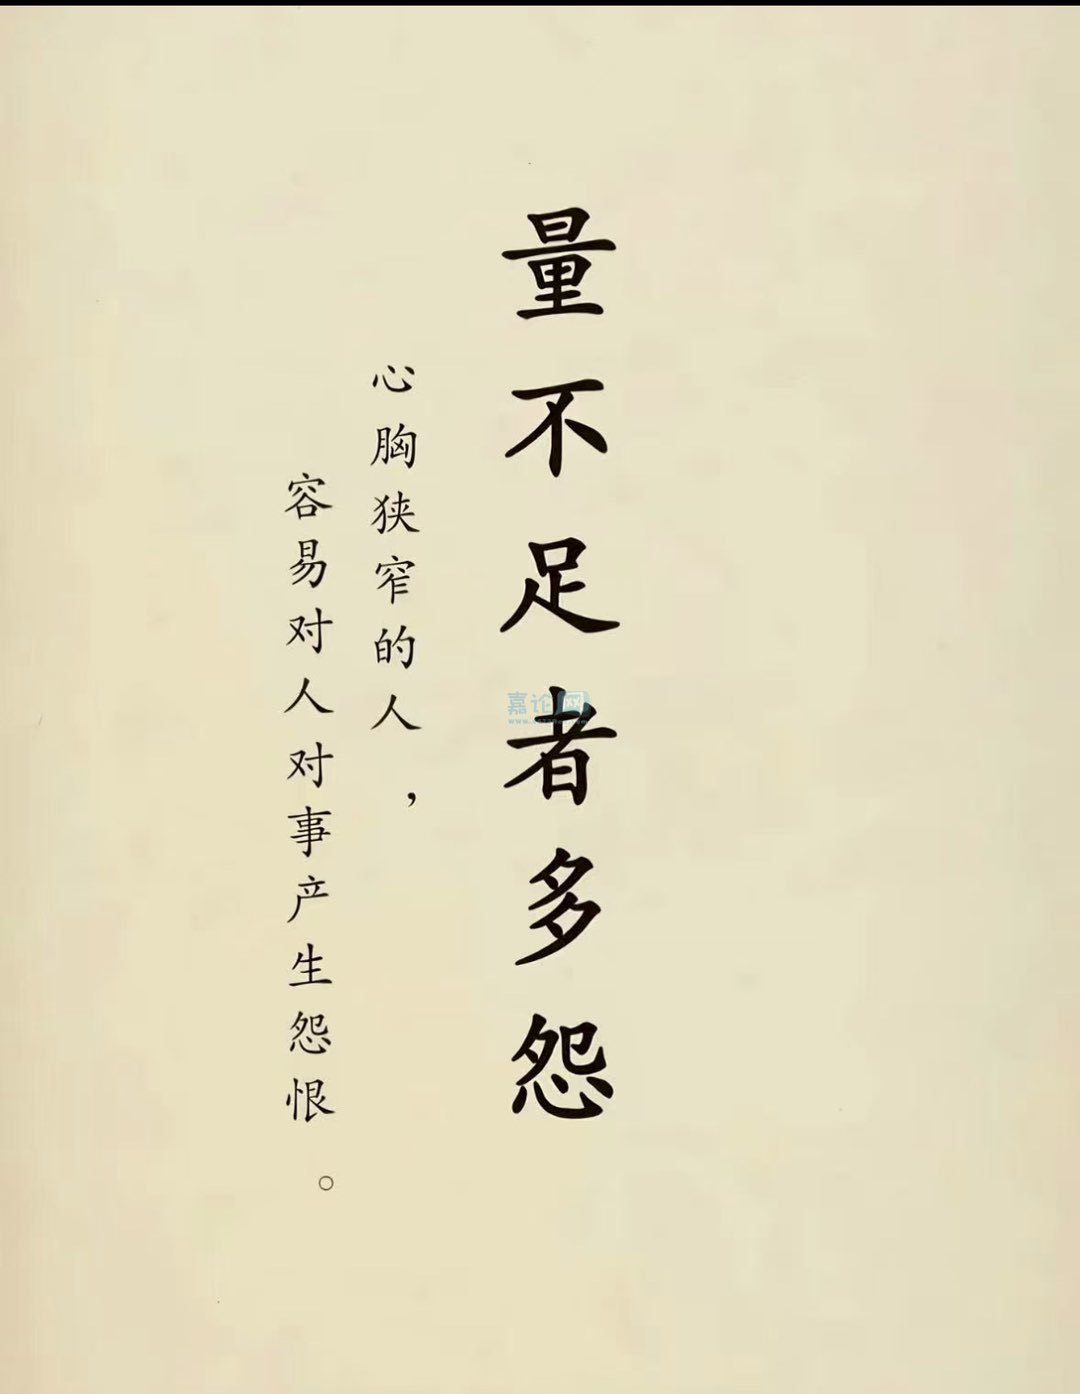 量不足者多怨
心胸狭窄的人，
容易对人对事产生怨恨。
嘉论网